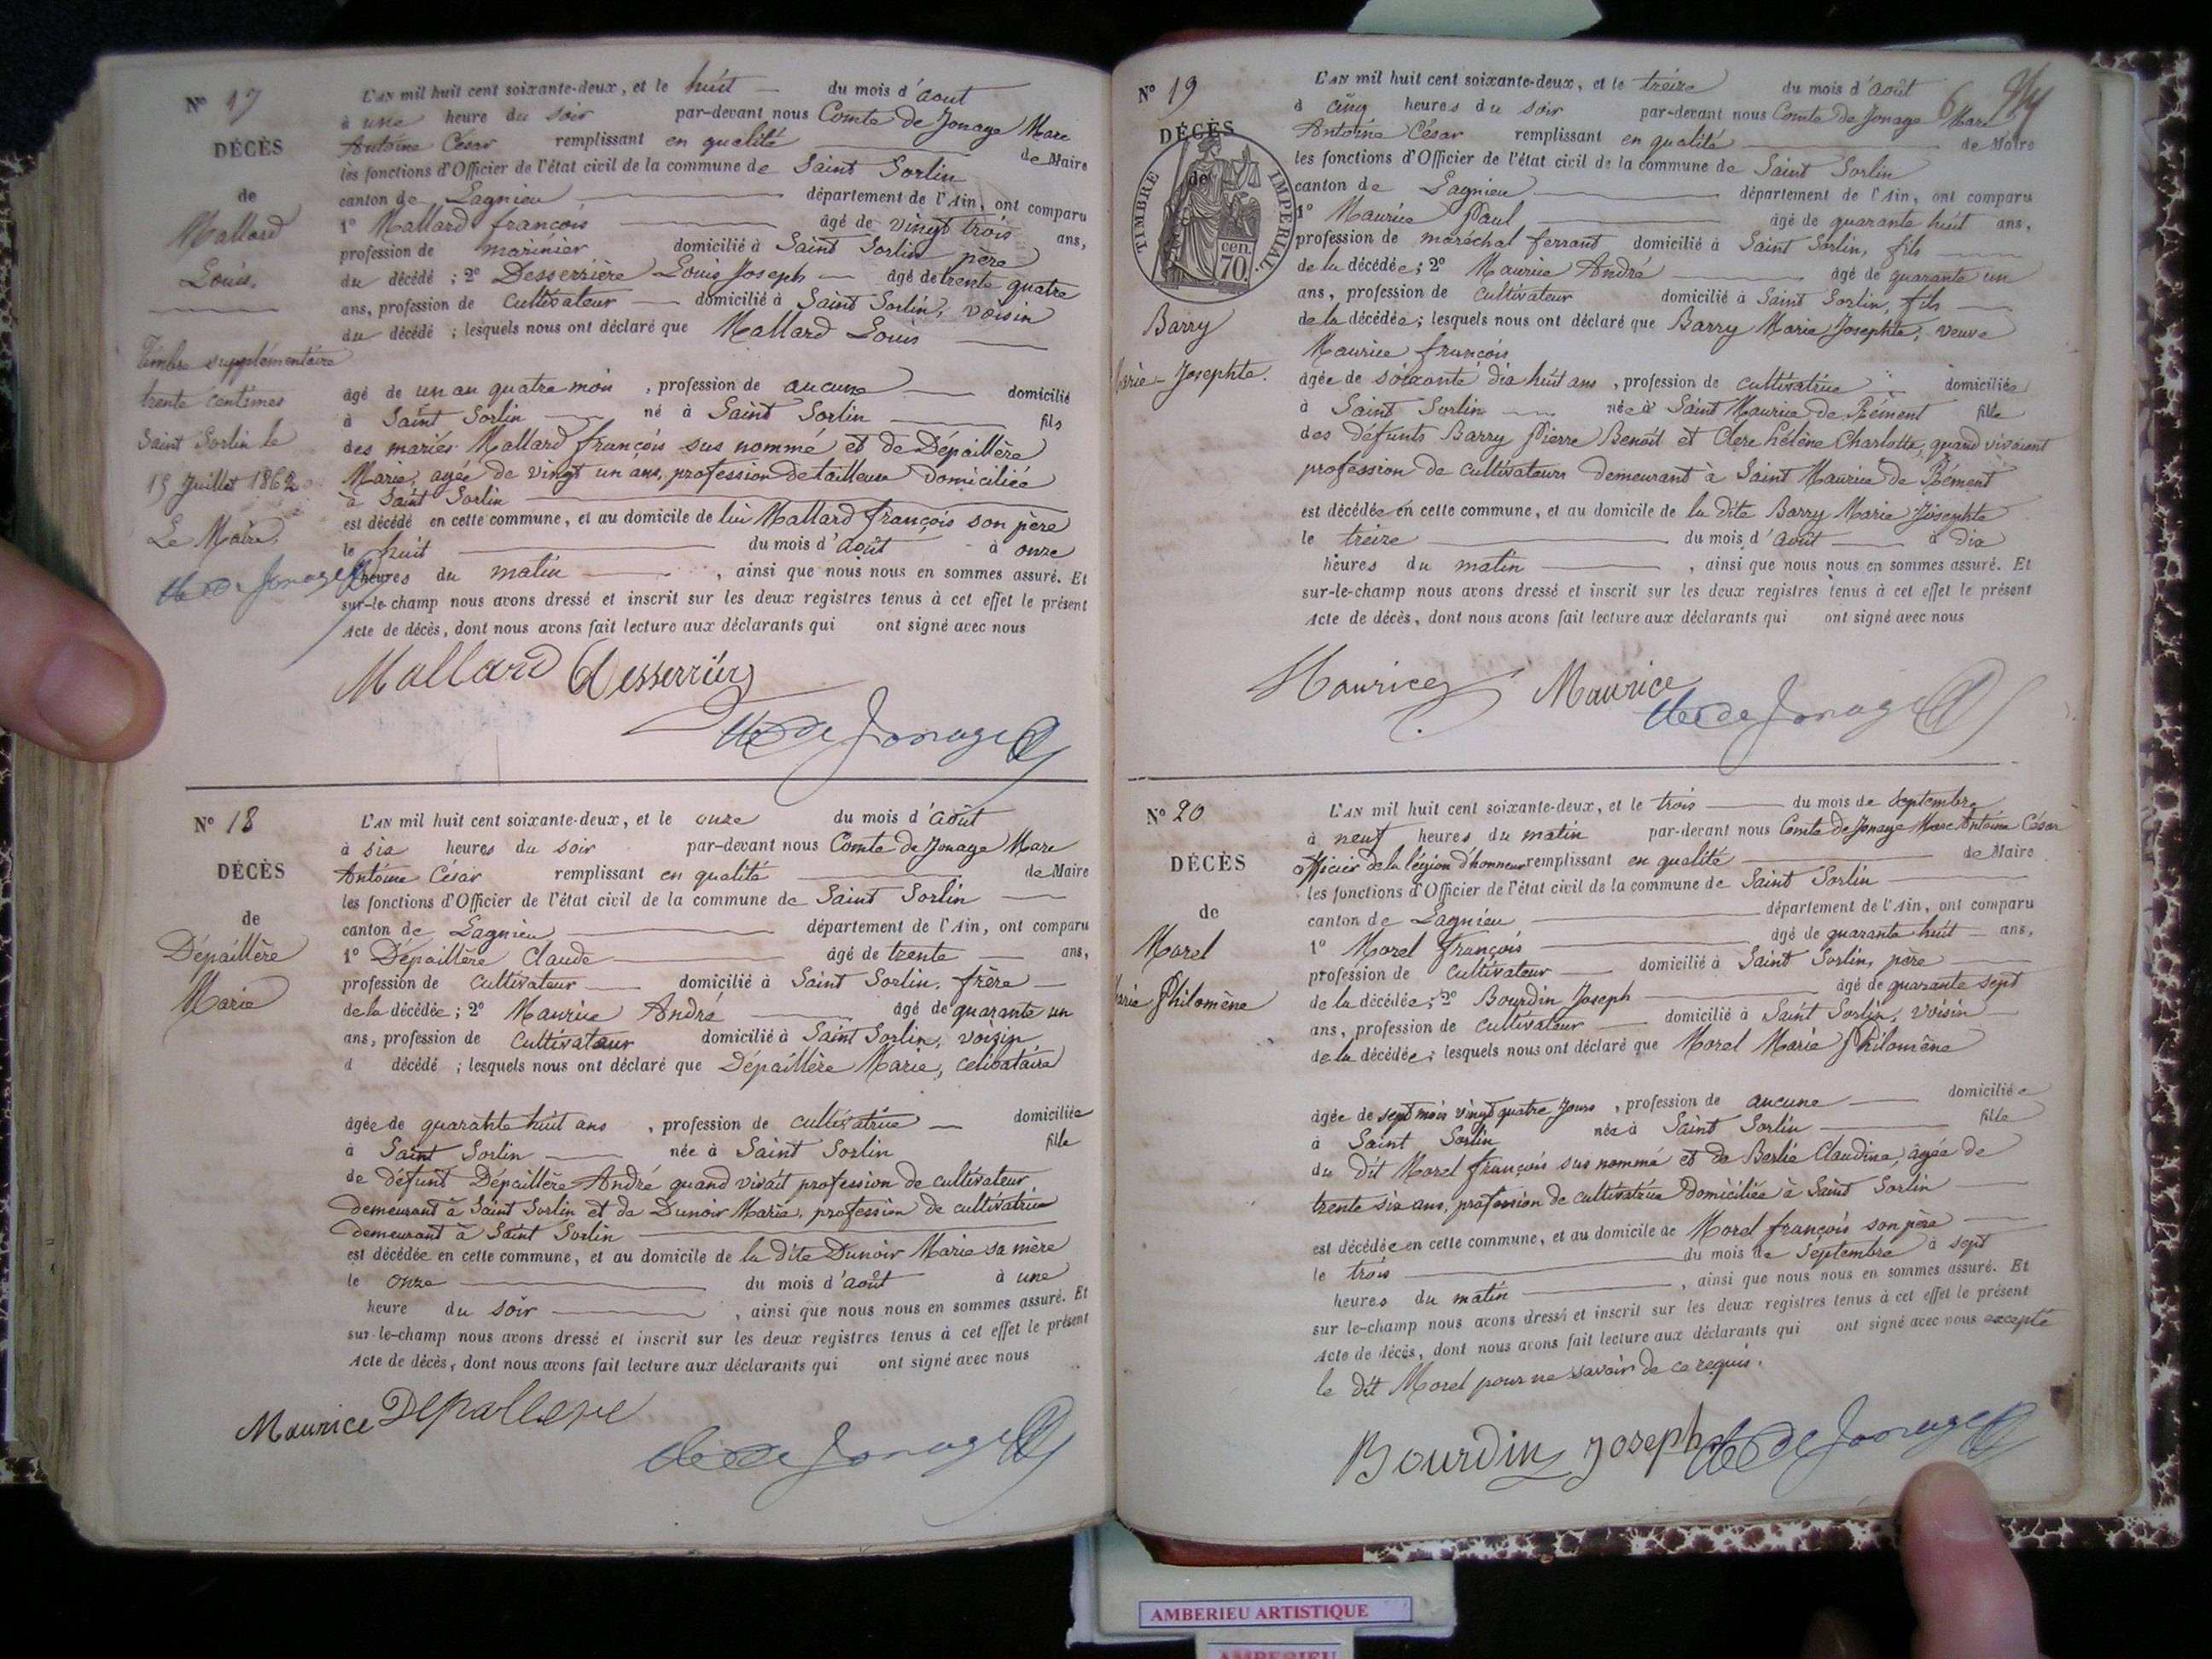 N° 17
DÉCÈS
de
Mallard
Louis.
Timbre supplémentaire
trente centimes
Saint Sorlin le
15 Juillet 1862
Le Maire,
L'AN mil huit cent soixante-deux, et le huit du mois d'aout
à une heure du soir par-devant nous Comte de Jonage Marc
Antoine César remplissant en qualité de Maire
les fonctions d'Officier de l'état civil de la commune de Saint Sorlin
canton de Lagnieu département de l'Ain, ont comparu
1° Mallard françois âgé de vingt trois ans,
profession de marinier domicilié à Saint Sorlin père
du décédé ; 2° Desserrière Louis Joseph âgé de trente quatre
ans, profession de cultivateur domicilié à Saint Sorlin, voisin
du décédé ; lesquels nous ont déclaré que Mallard Louis
âgé de un an quatre moi , profession de aucune domicilié
à Saint Sorlin né à Saint Sorlin fils
des mariés Mallard françois sus nommé et de Dépaillère
Marie, agée de vingt un ans, profession de tailleuse domiciliée
à Saint Sorlin
est décédé en cette commune, et au domicile de lui Mallard françois son père
le huit du mois d'août à onze
heures du matin , ainsi que nous nous en sommes assuré. Et
sur-le-champ nous avons dressé et inscrit sur les deux registres tenus à cet effet le présent
Acte de décès, dont nous avons fait lecture aux déclarants qui ont signé avec nous
Mallard Desserrière
de Jonage
N° 18
DÉCÈS
de
Dépaillère
Marie
L'AN mil huit cent soixante-deux, et le onze du mois d'août
à six heures du soir par-devant nous Comte de Jonage Marc
Antoine César remplissant en qualité de Maire
les fonctions d'Officier de l'état civil de la commune de Saint Sorlin
canton de Lagnieu département de l'Ain, ont comparu
1° Dépaillère Claude âgé de trente ans,
profession de cultivateur domicilié à Saint Sorlin, frère
de la décédée ; 2° Maurice André âgé de quarante un
ans, profession de cultivateur domicilié à Saint Sorlin, voisin
d décédé ; lesquels nous ont déclaré que Dépaillère Marie, celibataire
âgée de quarante huit ans , profession de cultivatrice domiciliée
à Saint Sorlin née à Saint Sorlin fille
de défunt Dépaillère André quand vivait profession de cultivateur,
demeurant à Saint Sorlin et de Dunoir Marie, profession de cultivatrice
demeurant à Saint Sorlin
est décédée en cette commune, et au domicile de la dite Dunoir Marie sa mère
le onze du mois d'août à une
heure du soir , ainsi que nous nous en sommes assuré. Et
sur-le-champ nous avons dressé et inscrit sur les deux registres tenus à cet effet le présent
Acte de décès, dont nous avons fait lecture aux déclarants qui ont signé avec nous
Maurice Depallere
de Jonage
N° 19
DÉCÈS
de
TIMBRE IMPERIAL.
cen.
70
Barry
Marie-Josephte.
L'AN mil huit cent soixante-deux, et le treize du mois d'août
à cinq heures du soir par-devant nous Comte de Jonage Marc
Antoine César remplissant en qualité de Maire
les fonctions d'Officier de l'état civil de la commune de Saint Sorlin
canton de Lagnieu département de l'Ain, ont comparu
1° Maurice Paul âgé de quarante huit ans,
profession de maréchal ferrant domicilié à Saint Sorlin, fils
de la décédée ; 2° Maurice André âgé de quarante un
ans, profession de cultivateur domicilié à Saint Sorlin, fils
de la décédée ; lesquels nous ont déclaré que Barry Marie Josephte, veuve
Maurice françois
âgée de soixante dix huit ans , profession de cultivatrice domiciliée
à Saint Sorlin née à Saint Maurice de Rément fille
des défunts Barry Pierre Benoît et Clere hélène Charlotte, quand vivaient
profession de cultivateurs demeurant à Saint Maurice de Rément
est décédée en cette commune, et au domicile de la dite Barry Marie Josephte
le treize du mois d'août à dix
heures du matin , ainsi que nous nous en sommes assuré. Et
sur-le-champ nous avons dressé et inscrit sur les deux registres tenus à cet effet le présent
Acte de décès, dont nous avons fait lecture aux déclarants qui ont signé avec nous
Maurice Maurice
de Jonage
N° 20
DÉCÈS
de
Morel
Marie Philomène
L'AN mil huit cent soixante-deux, et le trois du mois de septembre
à neuf heures du matin par-devant nous Comte de Jonage Marc Antoine César
officier de la légion d'honneur remplissant en qualité de Maire
les fonctions d'Officier de l'état civil de la commune de Saint Sorlin
canton de Lagnieu département de l'Ain, ont comparu
1° Morel françois âgé de quarante huit ans,
profession de cultivateur domicilié à Saint Sorlin, père
de la décédée ; 2° Bourdin Joseph âgé de quarante sept
ans, profession de cultivateur domicilié à Saint Sorlin, voisin
de la décédée ; lesquels nous ont déclaré que Morel Marie Philomène
âgée de sept mois vingt quatre jours , profession de aucune domiciliée
à Saint Sorlin née à Saint Sorlin fille
du dit Morel françois sus nommé et de Berlié Claudine, âgée de
trente six ans, profession de cultivatrice domiciliée à Saint Sorlin
est décédée en cette commune, et au domicile de Morel françois son père
le trois du mois de Septembre à sept
heures du matin , ainsi que nous nous en sommes assuré. Et
sur le-champ nous avons dressé et inscrit sur les deux registres tenus à cet effet le présent
Acte de décès, dont nous avons fait lecture aux déclarants qui ont signé avec nous excepté
le dit Morel pour ne savoir de ce requis.
Bourdin Joseph
de Jonage
AMBERIEU ARTISTIQUE
AMBERIEU